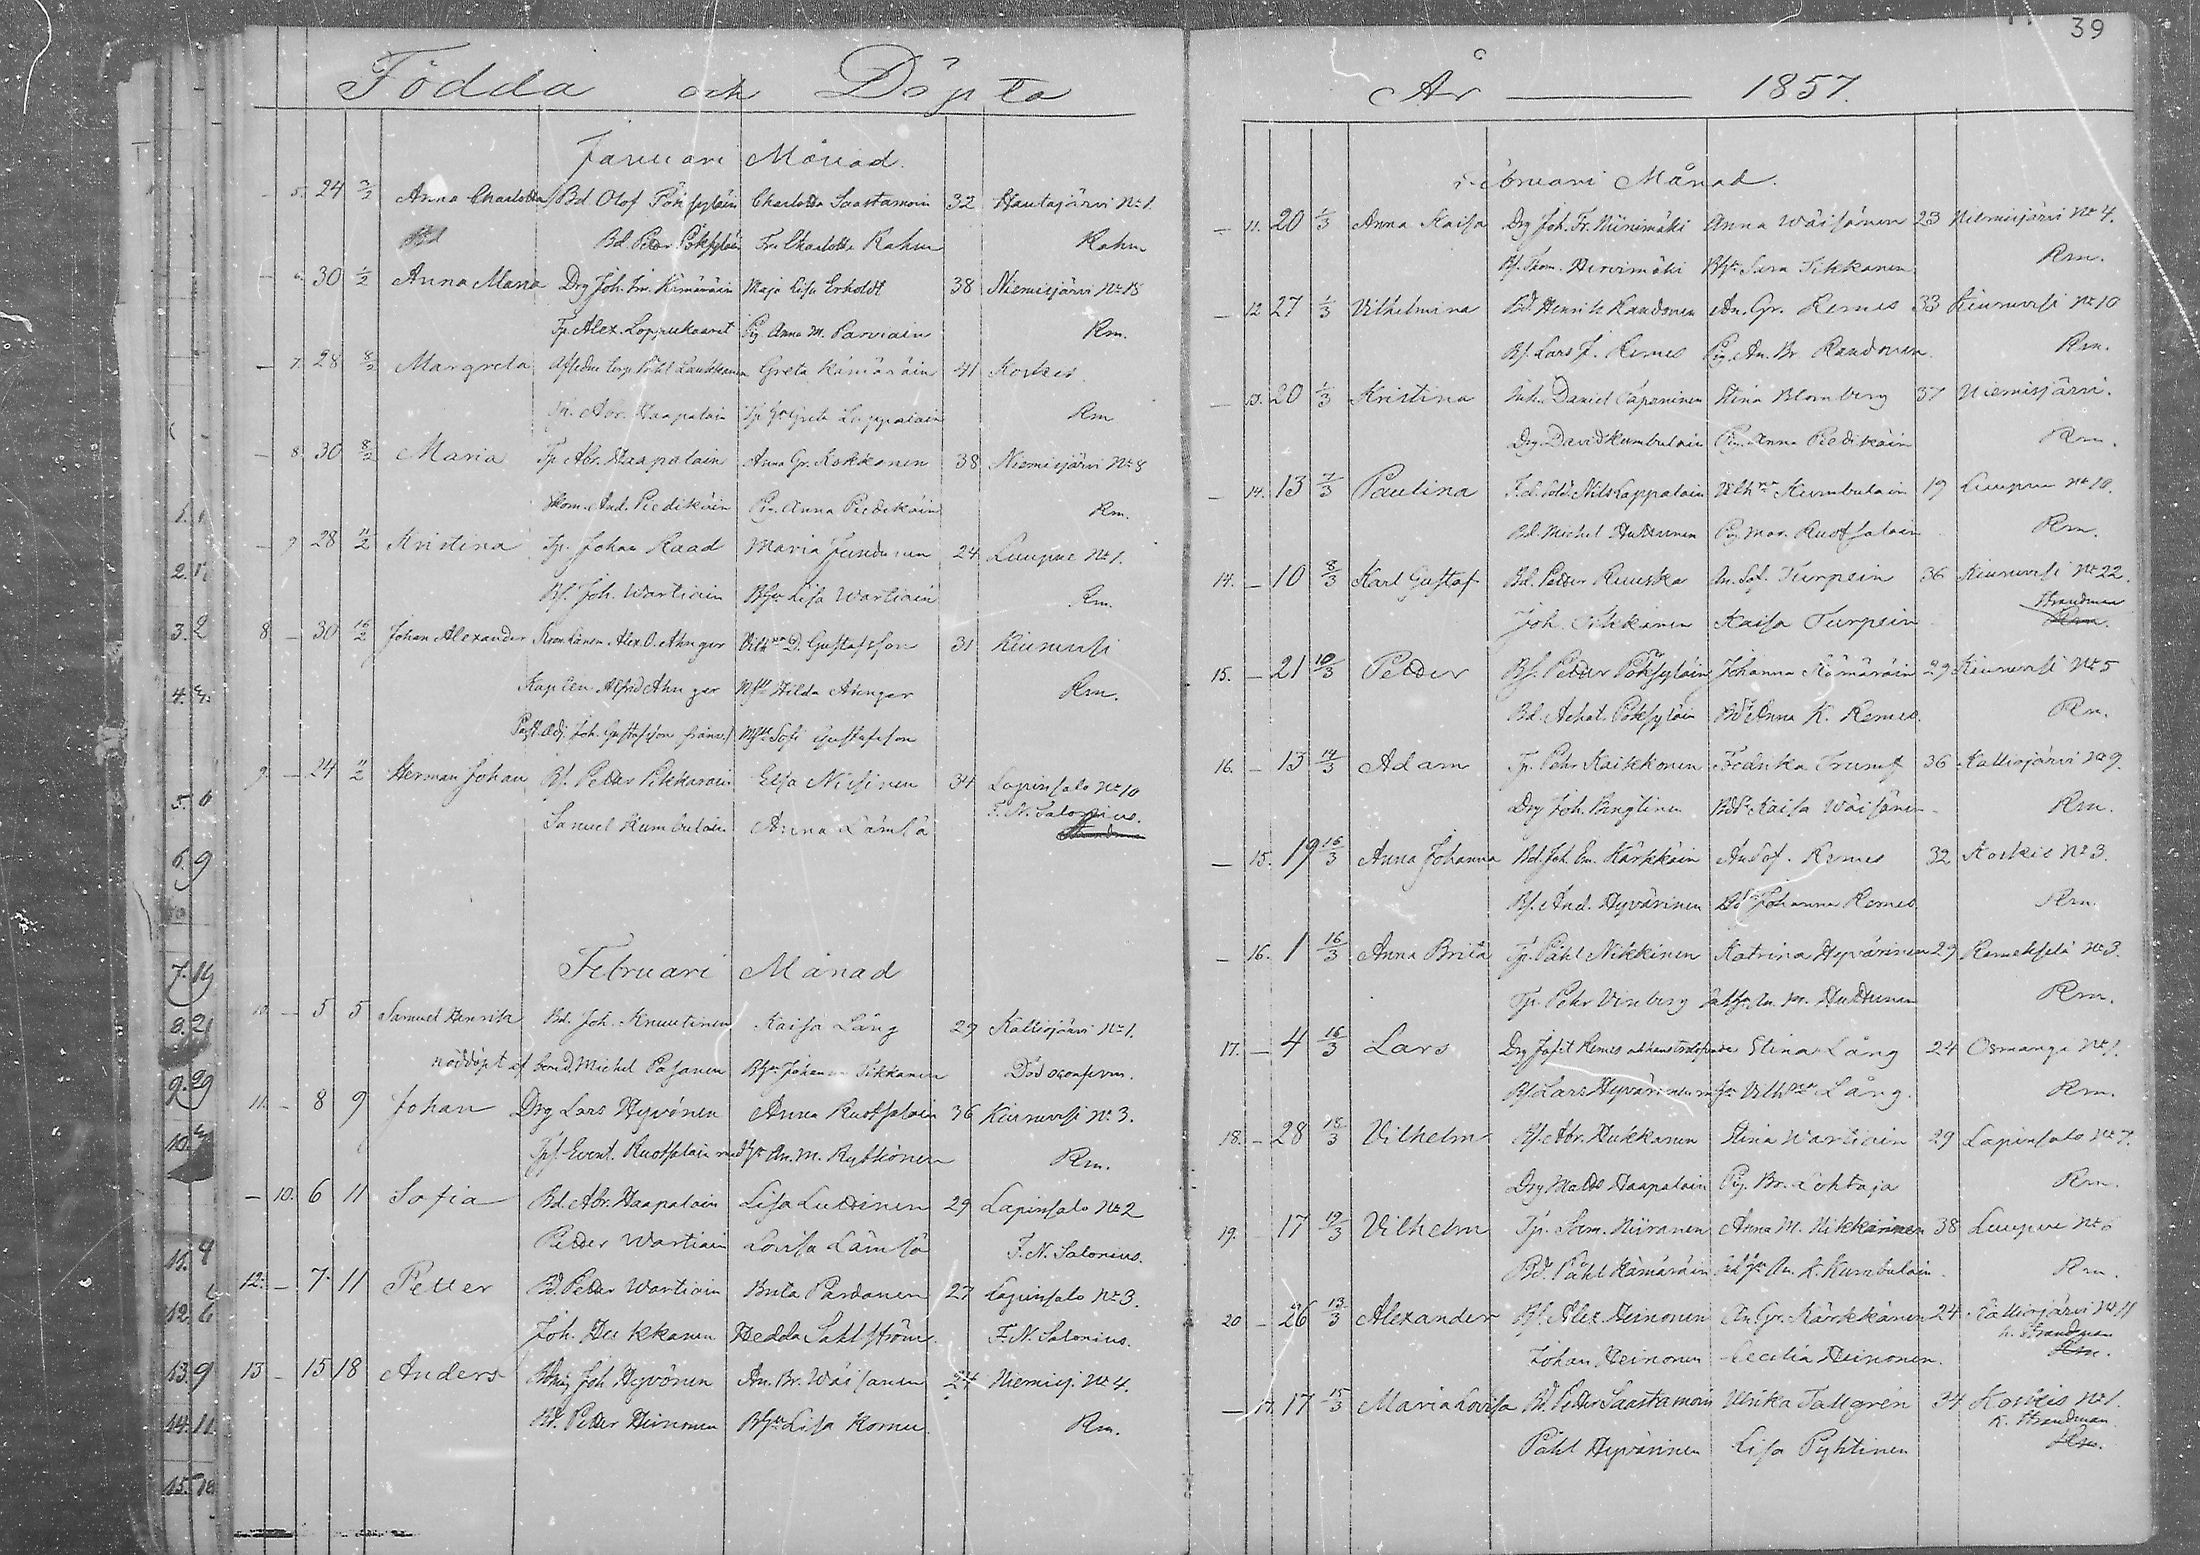 39
Födda och Döpta
Januari Månad.
5. 24 3/2 Anna Charlotta Bd Olof Pöksyläin Charlotta Saastamoin 32 Hautajärvi No 1.
Bd Bd. Petter Pöksyläin Fru Charlotte Rahm Rahm
6. 30 1/2 Anna Maria Drg Joh. Kämäräin Maja Lisa Erholdt 38 Niemisjärvi No 15
Tp. Alex. Loppukaarit Pig. Anna M. Parviain Rm.
7. 28 8/2 Margreta Påhl Laukkanen Greta Kämäräin 41 Koskis
Abr. Haapalain Greta Lappalain Rm
8. 30 8/2 Maria Tp Abr. Haapalain Anna Gr. Kokkonen 38 Niemisjärvi No 8
And. Piedikäin Pig. Anna Piedikäin Rm.
9 28 11/2 Kristina Tp. Johan Raad Maria 24 Luupue No 1.
Bf. Joh. Wartiain Bfhu Lisa Wartiain Rm.
8 – 30 15/2 Johan Alexander Alex. O. Ahnger Vilhna D. Gustafsson 31 Kiuruvesi
Kapten Alfred Ahnger Mslle Hilda Ahnger Rm.
Past. adj. Joh. Gustafsson Mslle Sofi Gustafsson
9. – 24 11/2 Herman Johan Bf. Petter Pikkarain Elsa Nissinen 34 Lapinsalo No 10
Samuel Kumbulain Anna Lämsä F. N. Salonius.
Februari Månad
10 – 5 5 Samuel Henrik Bd. Joh. Knuutinen Kaisa Lång 29 Kalliojärvi No 1.
nöddöpt af bond. Michel Pasanen Bfhu Johanna Tikkanen Död oconfirm.
11. – 8 9 Johan Drg Lars Hyvönen Anna Ruotsalain 36 Kiuruvesi No 3.
Ruotsalain med hu An. M. Rytkönen Rm.
– 10. 6 11 Sofia Bd. Abr. Haapalain Lisa Luttinen 29 Lapinsalo No 2
Petter Wartiain Lovisa Lämsä F. N. Salonius.
12. – 7 11 Petter Bd. Petter Wartiain Brita Pardanen 27 Lapinsalo No 3.
Joh. Hukkanen Hedda Sahlström F. N. Salonius.
13 – 15 18 Anders Joh Hyvönen An. Br. Wäisänen 24 Niemisj. No 4.
Bd. Petter Heinonen Bfhu Lisa Komu Rm.
År 1857.
Februari Månad.
– 11. 20 1/3 Anna Kaisa Drg Joh. Fr. Niinimäki Anna Wäisänen 23 Niemisjärvi No 4.
Bf. Thom. Hirvimäki Bfhu Sara Tikkanen Rm.
– 12 27 1/3 Vilhelmina Bd. Henrik Kandonen An. Gr. Remes 33 Kiuruvesi No 10
Bf. Lars J. Remes Pig. An. Br Kandonen Rm.
– 13. 20 1/3 Kristina Inh. Daniel Tapaninen Stina Blomberg 37 Niemisjärvi.
Drg. David Kumbulain Pig. Anna Piedikäin Rm.
– 14. 13 7/3 Paulina Nils Lappalain Vilhna Kumbulain 19 Luupue No 10.
Bd. Michel Huttunen Pig. Mar. Ruotsalain Rm.
14. – 10 8/3 Karl Gustaf Bd. Petter Ruuska An. Sof. Turpein 36 Kiuruvesi No 22.
Joh. Tikkanen Kaisa Turpein Strandman Rm.
15. – 21 10/3 Petter Bf. Petter Pöksyläin Johanna Kämäräin 29 Kiuruvesi No 5
Bd. Achat. Pöksyläin Bdr Anna K. Remes. Rm.
16. – 13 14/3 Adam Tp. Pehr Kaikkonen Fredrika Trumf 36 Kalliojärvi No 9.
Drg Joh. Bdr Kaisa Wäisänen Rm.
– 15. 19 16/3 Anna Johanna Bd. Joh. Em. Kärkkäin An Sof. Remes 32 Koskis No 3.
Bf. And. Hyvärinen Bdr Johanna Remes Rm.
– 16. 1 16/3 Anna Brita Tp. Påhl Nikkinen Katrina Hyvärinen 29 Remeskylä No 3.
Tp. Pehr Vinberg An. M. Huttunen Rm.
17. – 4 16/3 Lars Drg Josef Remes Stina Lång 24 Osmangi No 1.
Bf Lars Hyvärinen Vilhna Lång. Rm.
18. – 28 18/3 Vilhelm Bf. Abr. Hukkanen Stina Wartiain 29 Lapinsalo No 7.
Drg Matts Haapalain Pig. Br. Lohtaja Rm.
19. – 17 19/3 Vilhelm Tp. Thom. Niiranen Anna M. Nikkarinen 38 Luupue No 6
Bd. Påhl Kämäräin An. K. Kumbulain. Rm.
20 – 26 13/3 Alexander Bf. Alex Heinonen An. Gr. Kärkkäinen 24 Kalliojärvi No 11
Johan Heinonen Cecilia Heinonen. K. Strandman Rm.
– 17. 17 15/3 Maria Lovisa Bd. Petter Saastamoin Ulrika Tallgrén 34 Koskis No 1.
Påhl Hyvärinen Lisa Pyhtinen K. Strandman Rm.